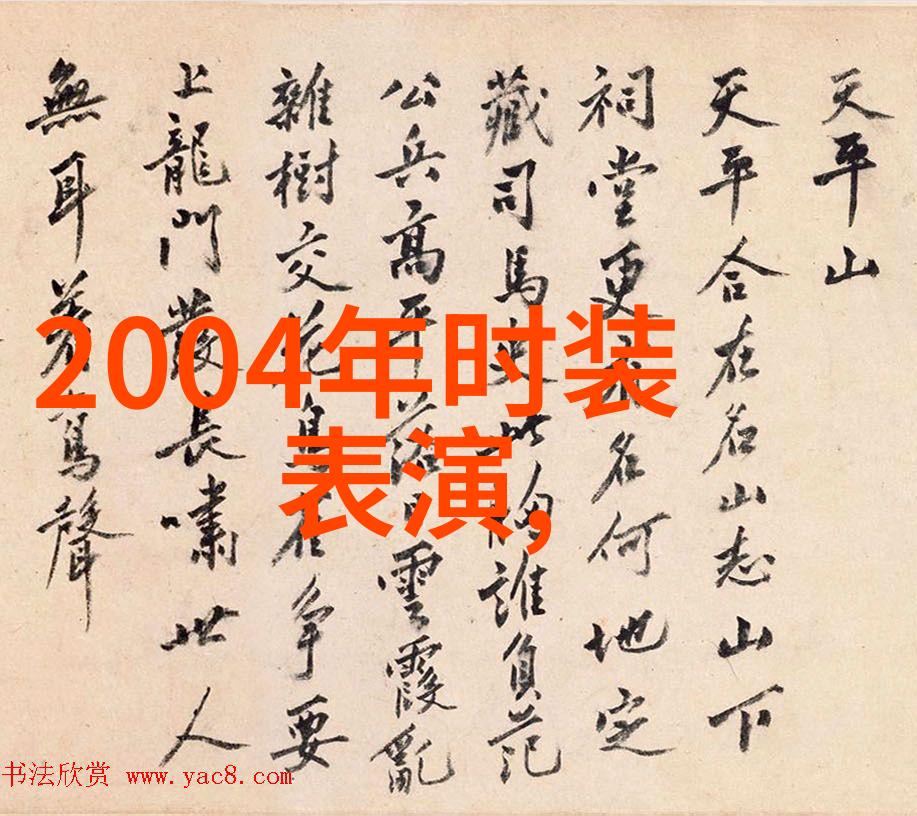 天平山
天平合在名山志山下
祠堂更名何地定
藏司馬史此胸誰負范
公兵高平落日雲霞亂
雜樹交花鳥雀爭要
上龍門發長嘯世人
無耳聲
2004年时装
表演,
书法欣赏 www.yac8.com